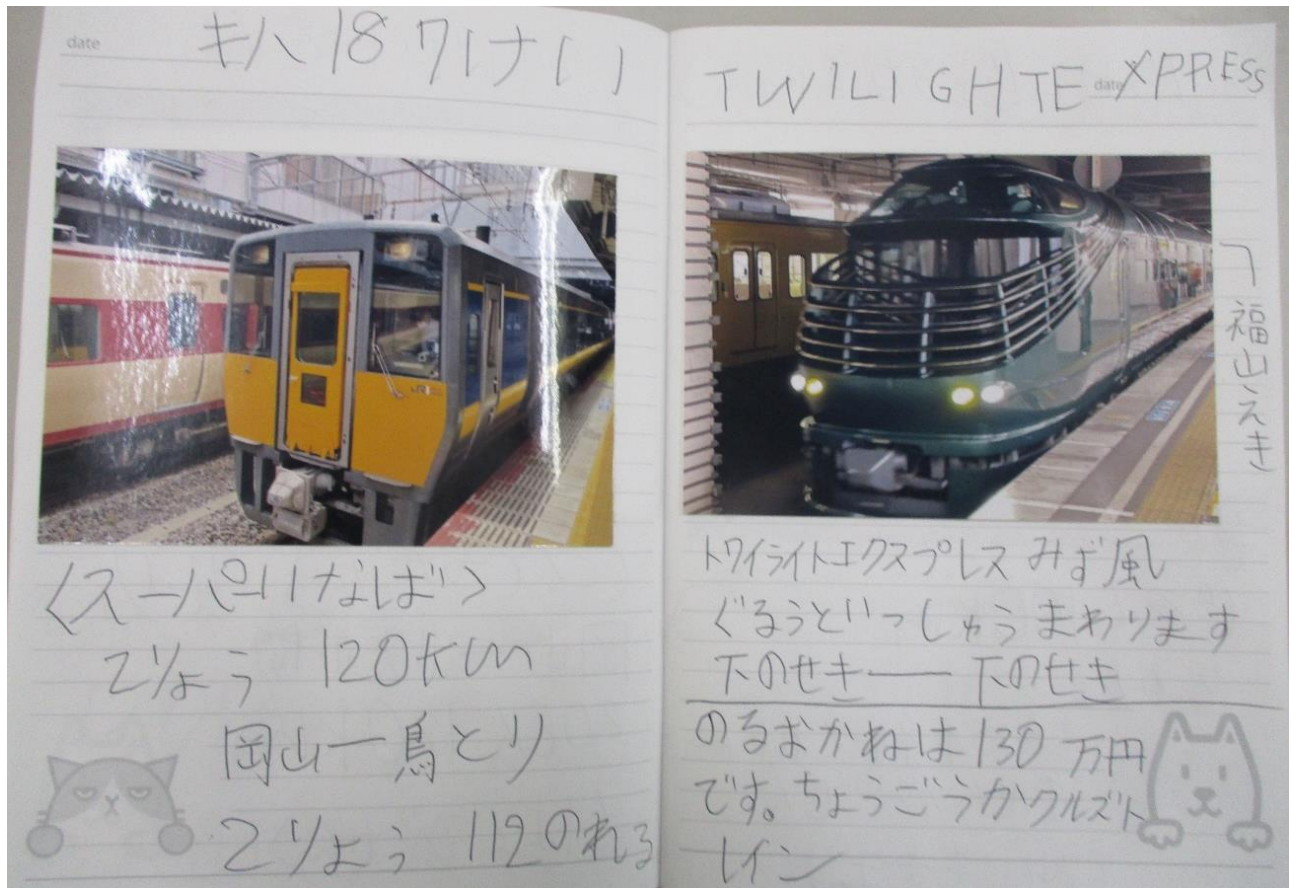 date
キハ187けい
<スーパーいなば>
2りょう 120km
岡山ー鳥とり
2りょう 112のれる
TWILIGHTEXPRESS
date
福山えき
トワイライトエクスプレス みず風
ぐるうといっしゅうまわります
下のせき——下のせき
のるおかねは130万円
です。ちょうごうかクルズト
レイン